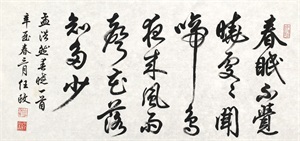 春眠不覺
曉處處聞
啼鳥
夜来風雨
聲花落
知多少
孟浩然春曉一首
春三月任政